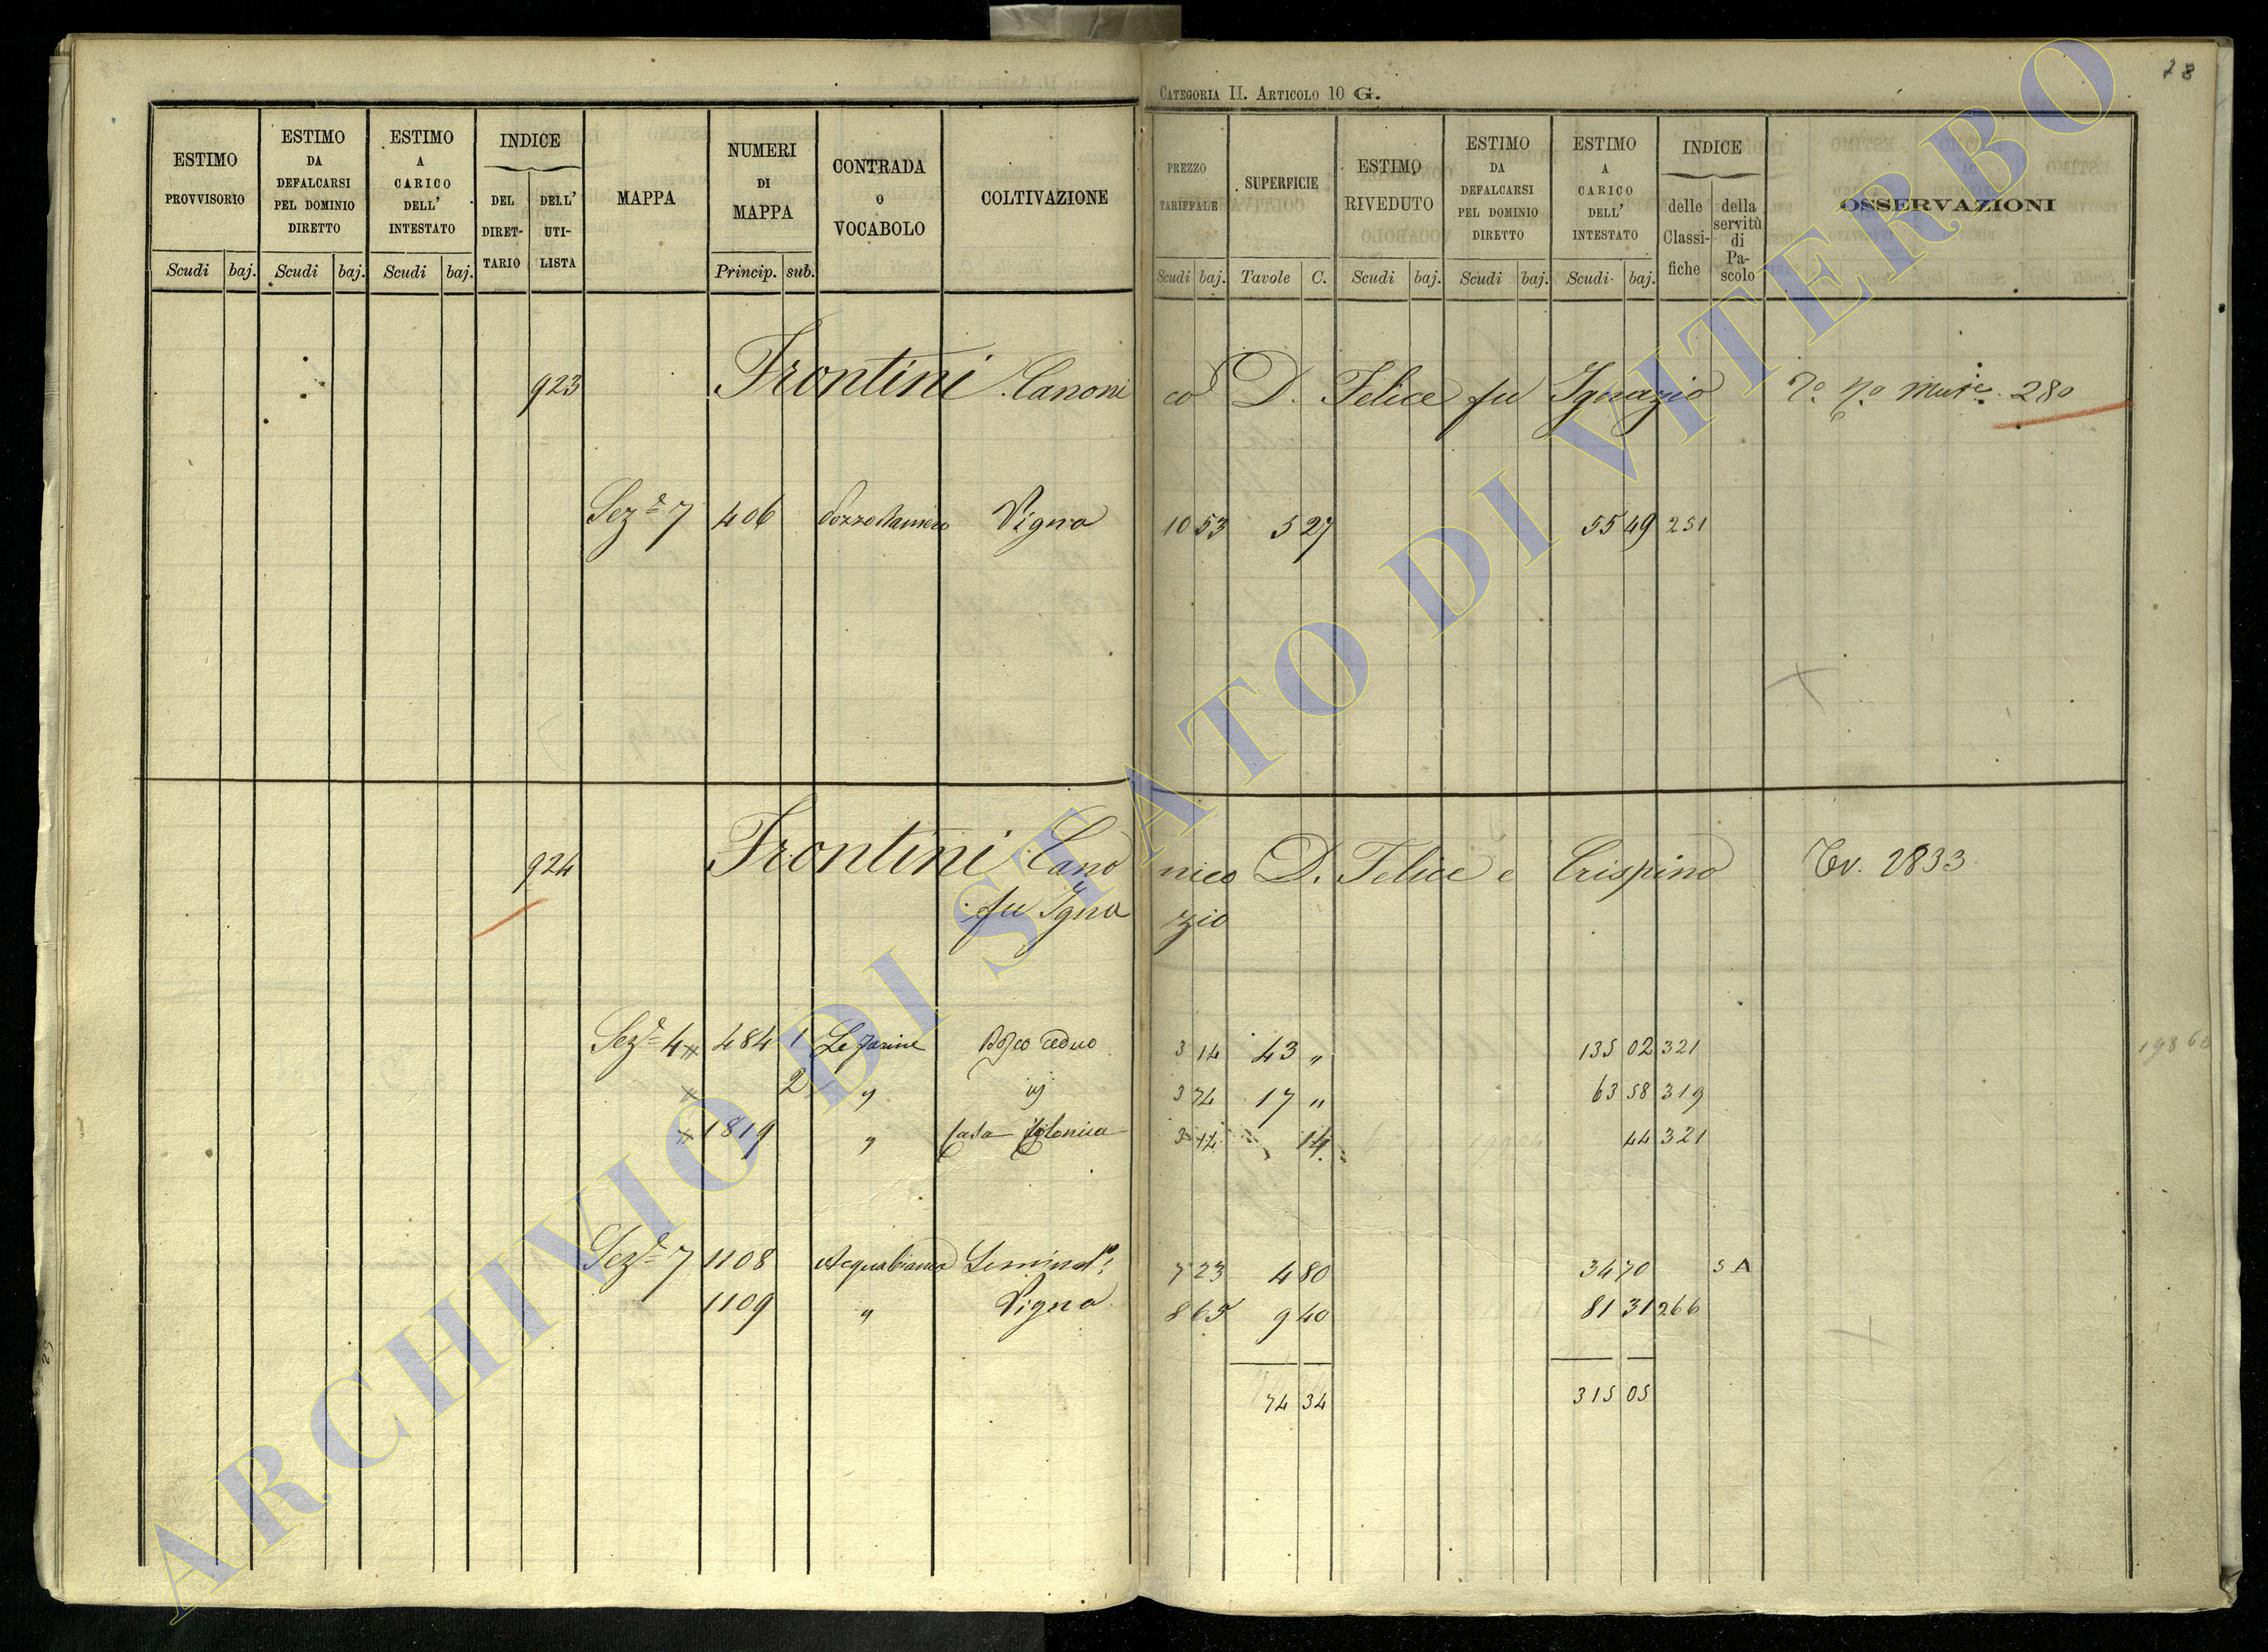 28
CATEGORIA II. ARTICOLO 10 G.
ESTIMO PROVVISORIO
ESTIMO DA DEFALCARSI PEL DOMINIO DIRETTO
ESTIMO A CARICO DELL' INTESTATO
INDICE
DEL DIRET-TARIO
DELL' UTI-LISTA
MAPPA
NUMERI DI MAPPA
CONTRADA O VOCABOLO
COLTIVAZIONE
PREZZO TARIFFALE
SUPERFICIE
ESTIMO RIVEDUTO
ESTIMO DA DEFALCARSI PEL DOMINIO DIRETTO
ESTIMO A CARICO DELL' INTESTATO
INDICE
delle Classi-fiche
della servitù di Pa-scolo
OSSERVAZIONI
Scudi baj. Scudi baj. Scudi baj. Princip. sub. Scudi baj. Tavole C. Scudi baj. Scudi baj. Scudi baj.
923 Frontini Canonico D. Felice fu Ignazio 280
Sez.e 7 406 Vigna 10 53 5 27 55 49 251
924 Frontini Canonico D. Felice e Crispino Tv. 2833
fu Ignazio
Sez.e 4 484 1 Le Farine Bosco ceduo 3 14 43 " 135 02 321
2 " 3 74 17 " 63 58 319
1819 " Casa Colonica 3 14 14 44 321
19860
Sez.e 7 1108 Acquabianca Seminat.o 7 23 4 80 34 70 5 A
1109 " Vigna 8 65 9 40 81 31 266
74 34 315 05
ARCHIVIO DI STATO DI VITERBO